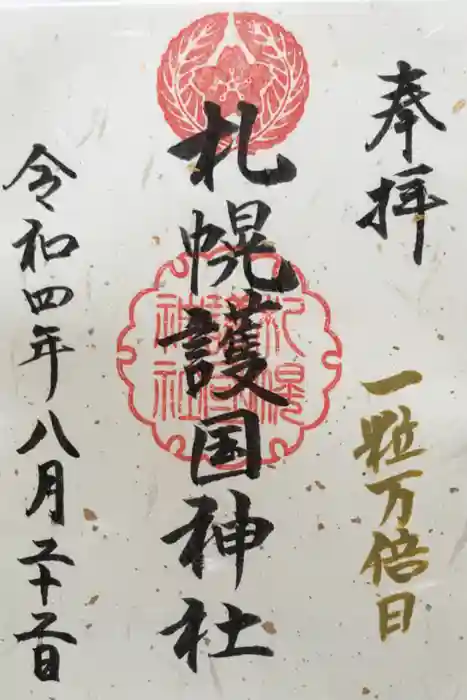 奉拝
一粒万倍日
札幌護国神社
札幌護国神社
令和四年八月二十二日